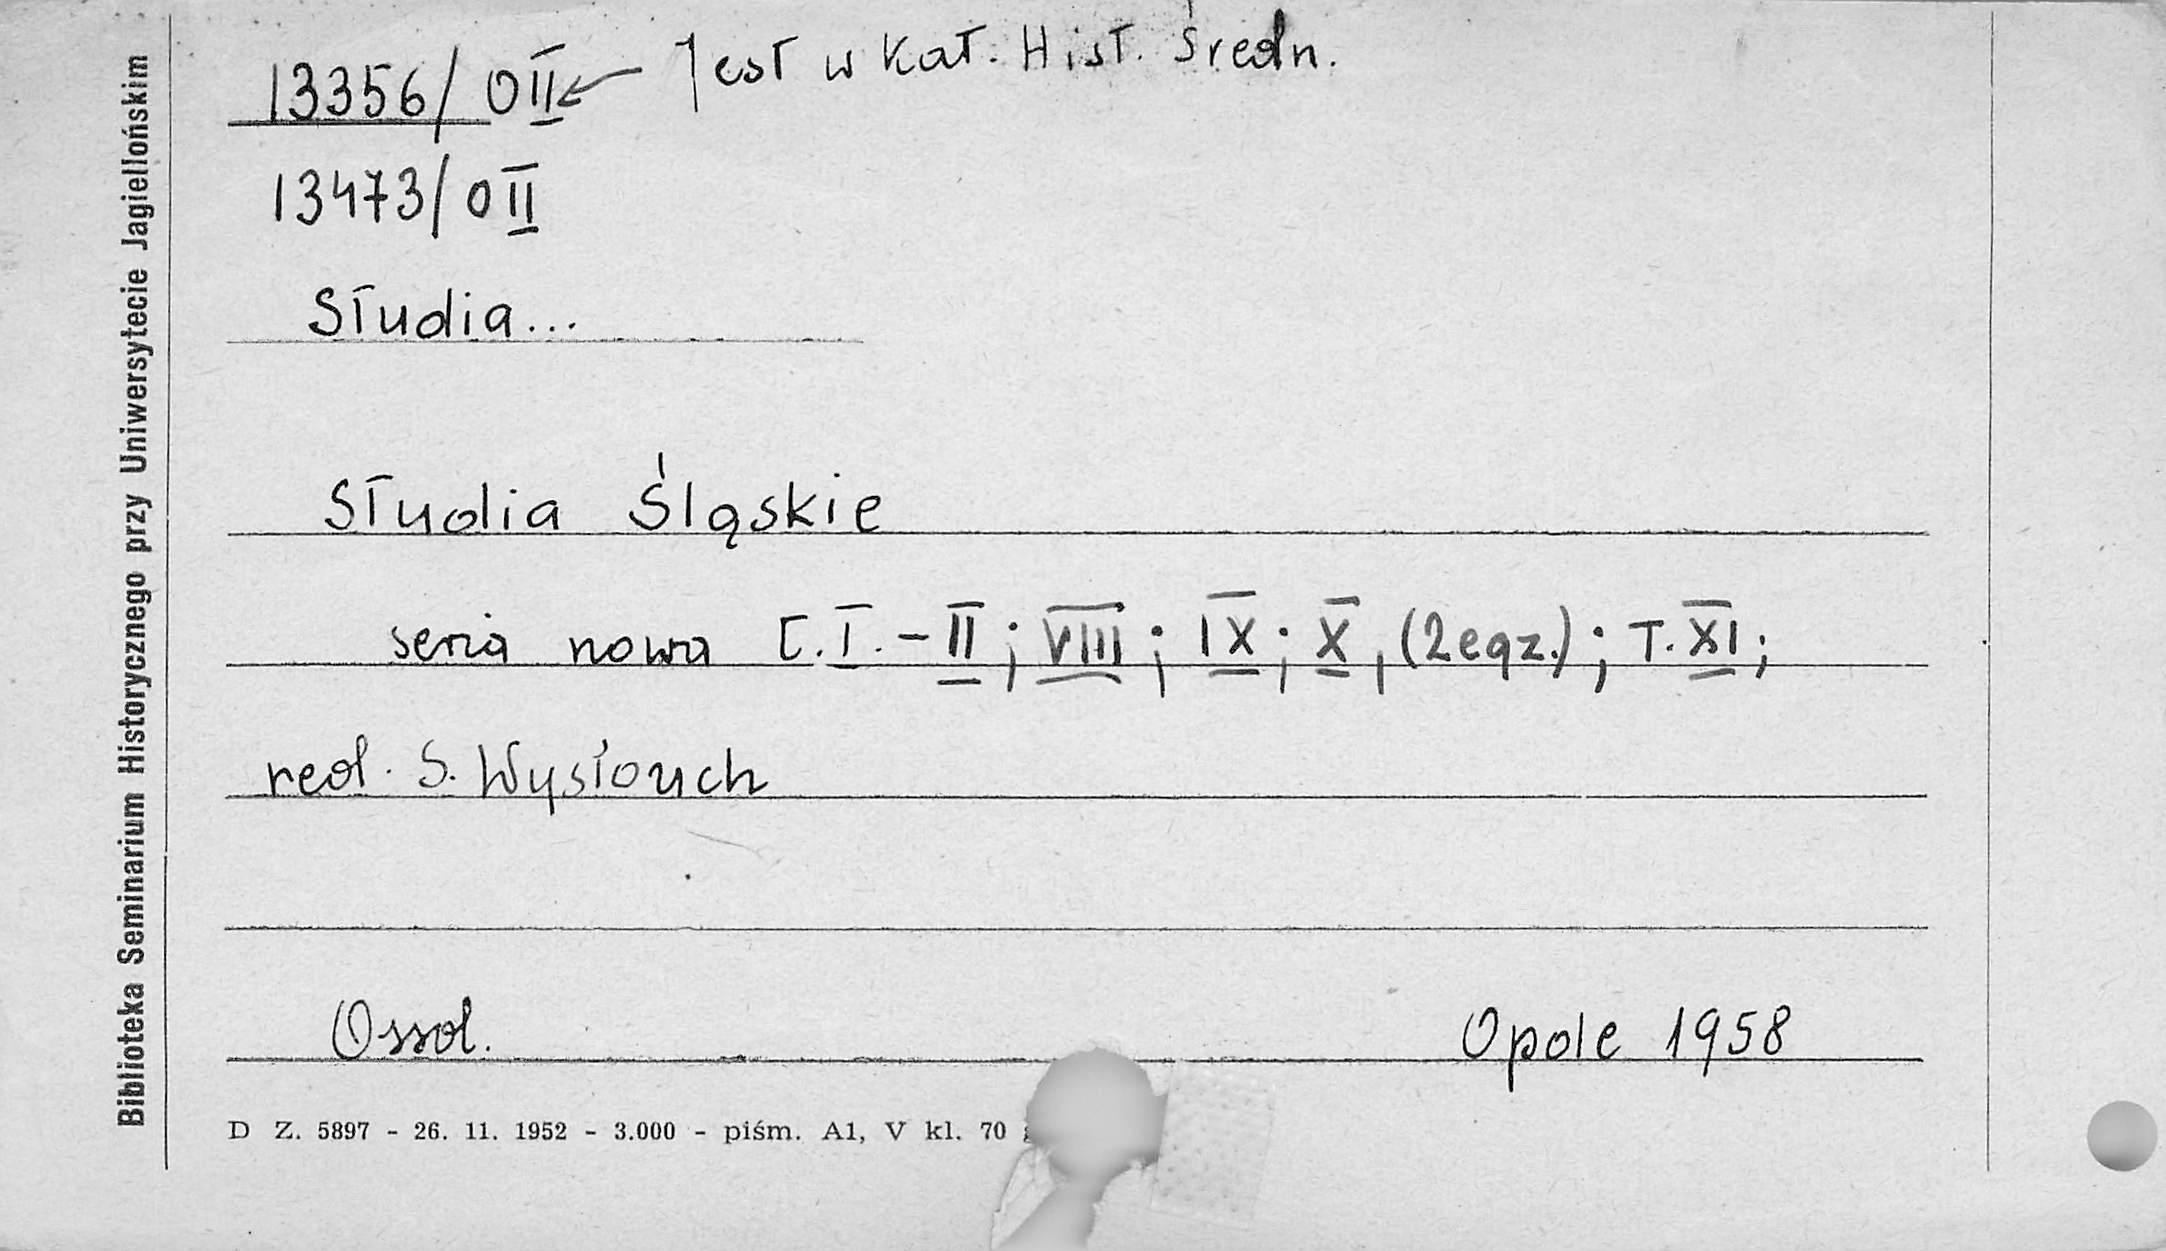 13356/OII ← Jest w Kat. Hist. Średn.
13473/OII
Studia...
Studia Śląskie
seria nowa t. I. - II; VIII; IX; X, (2 egz.); T. XI;
red. S. Wysłouch
Ossol.
Opole 1958
D Z. 5897 - 26. 11. 1952 - 3.000 - piśm. A1, V kl. 70
Biblioteka Seminarium Historycznego przy Uniwersytecie Jagiellońskim